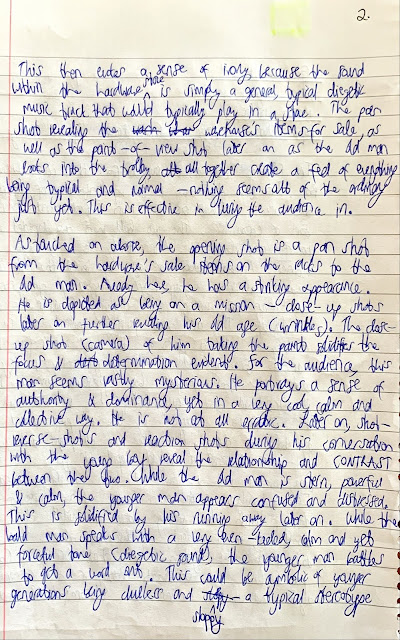 2.
This then creates a sense of irony because the sound
within the hardware store is simply a general, typical diegetic
music track that would typically play in a store. The pan
shot revealing the warehouse's items for sale, as
well as the point-of-view shot later on as the old man
looks into the trolley all together create a feel of everything
being typical and normal - nothing seems out of the ordinary
just yet. This is effective in luring the audience in.
As touched on above, the opening shot is a pan shot
from the hardware's sale items on the racks to the
old man. Already here, he has a striking appearance.
He is depicted as being on a mission - close-up shots
later on further revealing his old age (wrinkles). The close-
up shot (camera) of him taking the paint solidifies the
focus & determination evident. For the audience, this
man seems vastly mysterious. He portrays a sense of
authority & dominance, yet in a very cool, calm and
collective way. He is not at all erratic. Later on, shot-
reverse-shots and reaction shots during his conversation
with the young boy reveal the relationship and CONTRAST
between the two. While the old man is stern, powerful
& calm, the younger man appears confused and distressed.
This is solidified by his running away later on. While the
bald man speaks with a very even-toned, calm and yet
forceful tone (diegetic sound), the younger man battles
to get a word out. This could be symbolic of younger
generations being clueless and sloppy - a typical stereotype